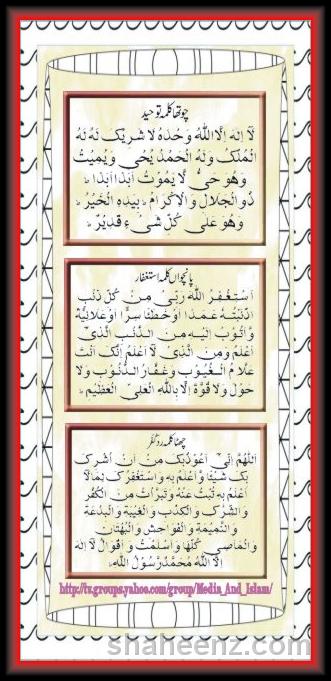 چوتھا کلمہ توحید
لَآ اِلٰهَ اِلَّا اللّٰهُ وَحْدَهٗ لَا شَرِيْكَ لَهٗ لَهُ
الْمُلْكُ وَلَهُ الْحَمْدُ يُحْيٖ وَيُمِيْتُ
وَهُوَ حَیٌّ لَّا يَمُوْتُ اَبَدًا اَبَدًا ط
ذُو الْجَلَالِ وَالْاِكْرَامِ ط بِيَدِهِ الْخَيْرُ ط
وَهُوَ عَلٰى كُلِّ شَیْءٍ قَدِيْرٌ ط
پانچواں کلمہ استغفار
اَسْتَغْفِرُ اللّٰهَ رَبِّیْ مِنْ كُلِّ ذَنْۢبٍ
اَذْنَبْتُهٗ عَمَدًا اَوْ خَطَأً سِرًّا اَوْ عَلَانِيَةً
وَّاَتُوْبُ اِلَيْهِ مِنَ الذَّنْۢبِ الَّذِیْٓ
اَعْلَمُ وَمِنَ الَّذِیْ لَآ اَعْلَمُ اِنَّكَ اَنْتَ
عَلَّامُ الْغُيُوْبِ وَغَفَّارُ الذُّنُوْبِ وَلَا
حَوْلَ وَلَا قُوَّةَ اِلَّا بِاللّٰهِ الْعَلِیِّ الْعَظِيْمِ ط
چھٹا کلمہ ردّ کفر
اَللّٰهُمَّ اِنِّیْٓ اَعُوْذُبِكَ مِنْ اَنْ اُشْرِكَ
بِكَ شَيْئًا وَّاَعْلَمُ بِهٖ وَاَسْتَغْفِرُكَ لِمَالَآ
اَعْلَمُ بِهٖ تُبْتُ عَنْهُ وَتَبَرَّأْتُ مِنَ الْكُفْرِ
وَالشِّرْكِ وَالْكِذْبِ وَالْغِيْبَةِ وَالْبِدْعَةِ
وَالنَّمِيْمَةِ وَالْفَوَاحِشِ وَالْبُهْتَانِ
وَالْمَعَاصِیْ كُلِّهَا وَاَسْلَمْتُ وَاَقُوْلُ لَآ اِلٰهَ
اِلَّا اللّٰهُ مُحَمَّدٌ رَّسُوْلُ اللّٰهِ ط
http://tv.groups.yahoo.com/group/Media_And_Islam/
shaheenz.com